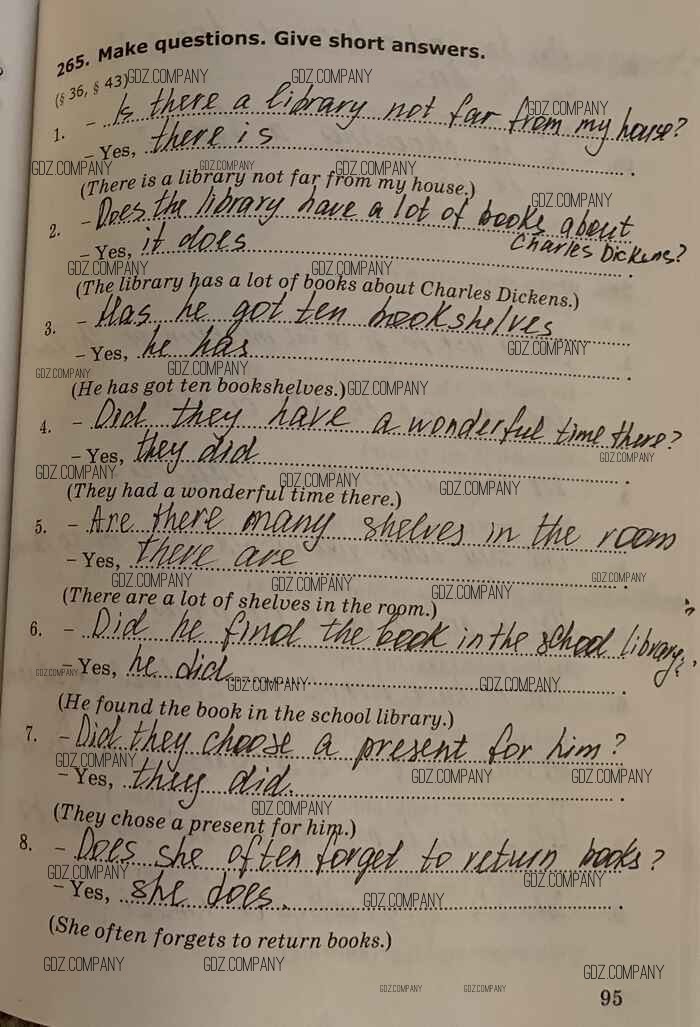 265. Make questions. Give short answers.
(§ 36, § 43) GDZ.COMPANY GDZ.COMPANY
1. – Is there a library not far from my house?
GDZ.COMPANY
– Yes, there is.
GDZ.COMPANY GDZ.COMPANY GDZ.COMPANY
(There is a library not far from my house.)
GDZ.COMPANY
2. – Does the library have a lot of books about
Charles Dickens?
– Yes, it does.
GDZ.COMPANY GDZ.COMPANY
(The library has a lot of books about Charles Dickens.)
3. – Has he got ten bookshelves
GDZ.COMPANY
– Yes, he has.
GDZ.COMPANY GDZ.COMPANY
(He has got ten bookshelves.) GDZ.COMPANY
4. – Did they have a wonderful time there?
– Yes, they did.
GDZ.COMPANY
GDZ.COMPANY GDZ.COMPANY GDZ.COMPANY
(They had a wonderful time there.)
5. – Are there many shelves in the room
– Yes, there are.
GDZ.COMPANY GDZ.COMPANY GDZ.COMPANY GDZ.COMPANY
(There are a lot of shelves in the room.)
6. – Did he find the book in the school library?
– Yes, he did.
GDZ.COMPANY GDZ.COMPANY GDZ.COMPANY
(He found the book in the school library.)
7. – Did they choose a present for him?
GDZ.COMPANY GDZ.COMPANY GDZ.COMPANY
– Yes, they did.
GDZ.COMPANY
(They chose a present for him.)
8. – Does she often forget to return books?
GDZ.COMPANY GDZ.COMPANY
– Yes, she does.
GDZ.COMPANY
(She often forgets to return books.)
GDZ.COMPANY GDZ.COMPANY GDZ.COMPANY
GDZ.COMPANY GDZ.COMPANY
95